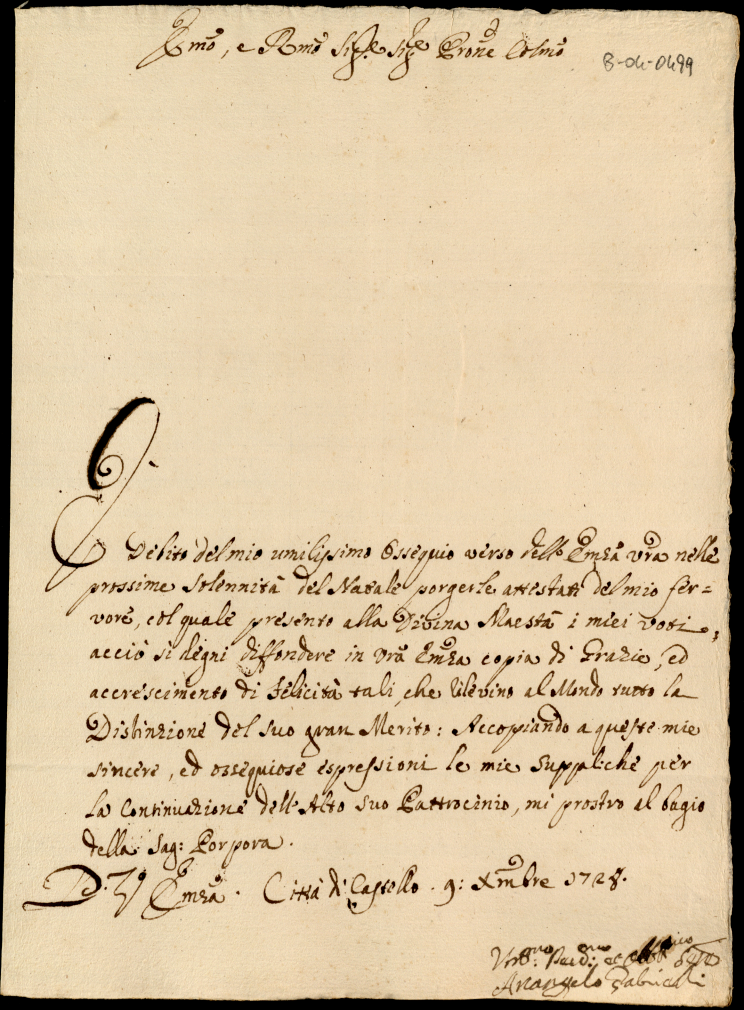 Emo, e Rmo Sigre Sigre Prone Colmo
B-04-0499
È Debito del mio umilissimo Ossequio verso dell' Emza Vra nelle
prossime Solennità del Natale porgerle attestati del mio fer-
vore, col quale presento alla Divina Maestà i miei voti,
acciò si degni diffondere in Vra Emza copia di Grazie, ed
accrescimento di Felicità tali, che rilevino al Mondo tutto la
Distinzione del suo gran Merito: Accopiando a queste mie
sincere, ed ossequiose espressioni le mie Suppliche per
la Continuazione dell'Alto suo Pattrocinio, mi prostro al bagio
della Sag: Porpora.
D. V. Emza. Città di Castello. 9: Xmbre 1728.
Arcangelo